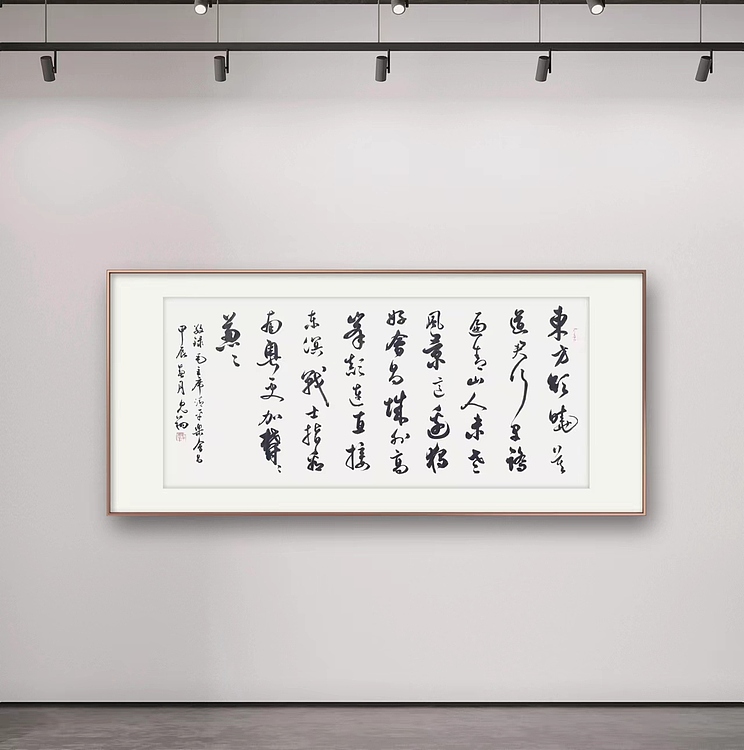 東方欲曉莫
道君行早踏
遍青山人未老
風景这邊独
好會昌城外高
峯颠連直接
东溟戰士指看
南粤更加鬱〻
葱〻
敬録毛主席清平樂會昌
甲辰月